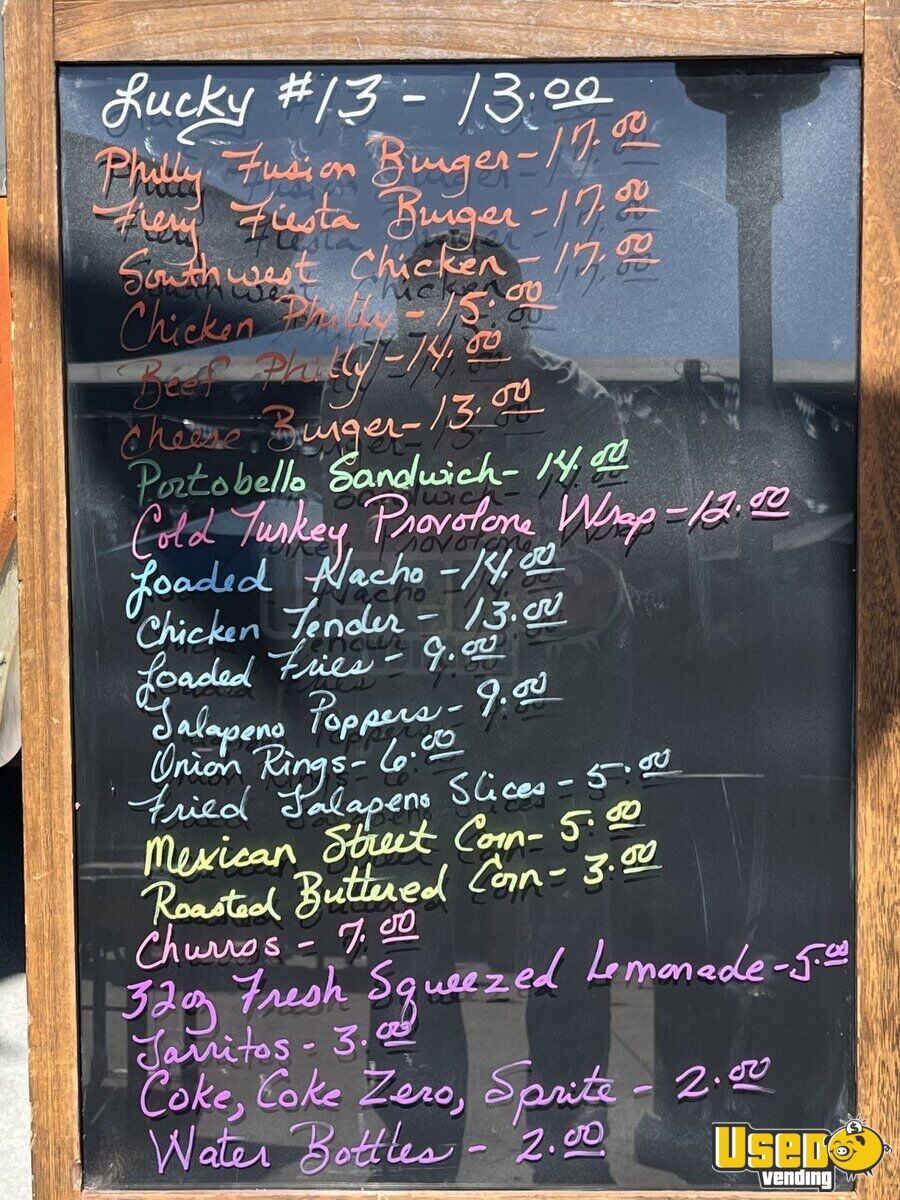 Lucky #13 - 13.00
Philly Fusion Burger - 17.00
Fiery Fiesta Burger - 17.00
Southwest Chicken - 17.00
Chicken Philly - 15.00
Beef Philly - 14.00
Cheese Burger - 13.00
Portobello Sandwich - 14.00
Cold Turkey Provolone Wrap - 12.00
Loaded Nacho - 14.00
Chicken Tender - 13.00
Loaded Fries - 9.00
Jalapeno Poppers - 9.00
Onion Rings - 6.00
Fried Jalapeno Slices - 5.00
Mexican Street Corn - 5.00
Roasted Buttered Corn - 3.00
Churros - 7.00
32oz Fresh Squeezed Lemonade - 5.00
Jarritos - 3.00
Coke, Coke Zero, Sprite - 2.00
Water Bottles - 2.00
USED
vending